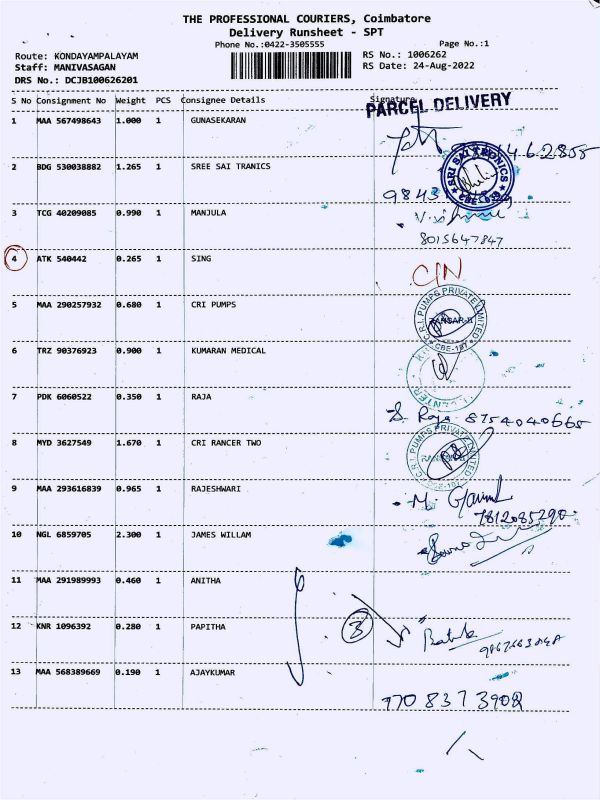 THE PROFESSIONAL COURIERS, Coimbatore
Delivery Runsheet - SPT
Phone No.:0422-3505555 Page No.:1
Route: KONDAYAMPALAYAM RS No.: 1006262
Staff: MANIVASAGAN RS Date: 24-Aug-2022
DRS No.: DCJB100626201
S No Consignment No Weight PCS Consignee Details Signature
PARCEL DELIVERY
1 MAA 567498643 1.000 1 GUNASEKARAN
2 BDG 530038882 1.265 1 SREE SAI TRANICS
SRI SAI TRONICS
3 TCG 40209085 0.990 1 MANJULA
8015647847
4 ATK 540442 0.265 1 SING
5 MAA 290257932 0.680 1 CRI PUMPS
C.R.I. PUMPS PRIVATE LIMITED
6 TRZ 90376923 0.900 1 KUMARAN MEDICAL
7 PDK 6060522 0.350 1 RAJA
S. Raja 8754040665
8 MYD 3627549 1.670 1 CRI RANCER TWO
C.R.I. PUMPS PRIVATE LIMITED
9 MAA 293616839 0.965 1 RAJESHWARI
7812085290
10 NGL 6859705 2.300 1 JAMES WILLAM
11 MAA 291989993 0.460 1 ANITHA
12 KNR 1096392 0.280 1 PAPITHA
3
13 MAA 568389669 0.190 1 AJAYKUMAR